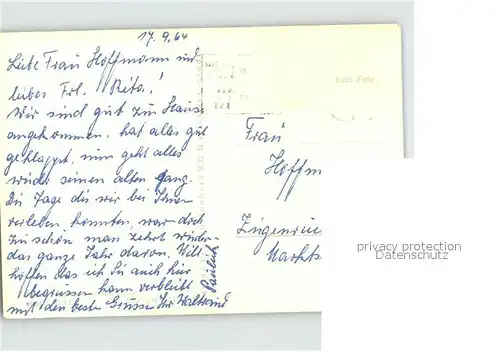 17.9.64
Liebe Frau Hoffmann und
liebes Frl. Rita!
Wir sind gut zu Hause
angekommen, hat alles gut
geklappt, nun geht alles
wieder seinen alten Gang.
Die Tage die wir bei Ihnen
verleben konnten, war doch
zu schön man zehrt wieder
das ganze Jahr davon. Will
hoffen das ich Sie auch hier
begrüssen kann verbleibt
mit den besten Grüssen Ihr Waltraud
Echt Foto
Frau
Hoffm
Markts
privacy protection
Datenschutz